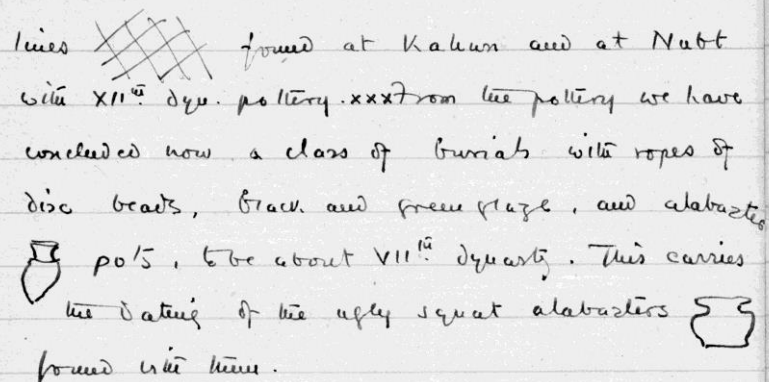 lines found at Kahun and at Nubt
with XIIth dyn. pottery. xxx From the pottery we have
concluded now a class of burials with ropes of
disc beads, black and green glaze, and alabaster
pots, to be about VIIth dynasty. This carries
the dating of the ugly squat alabasters
found with them.